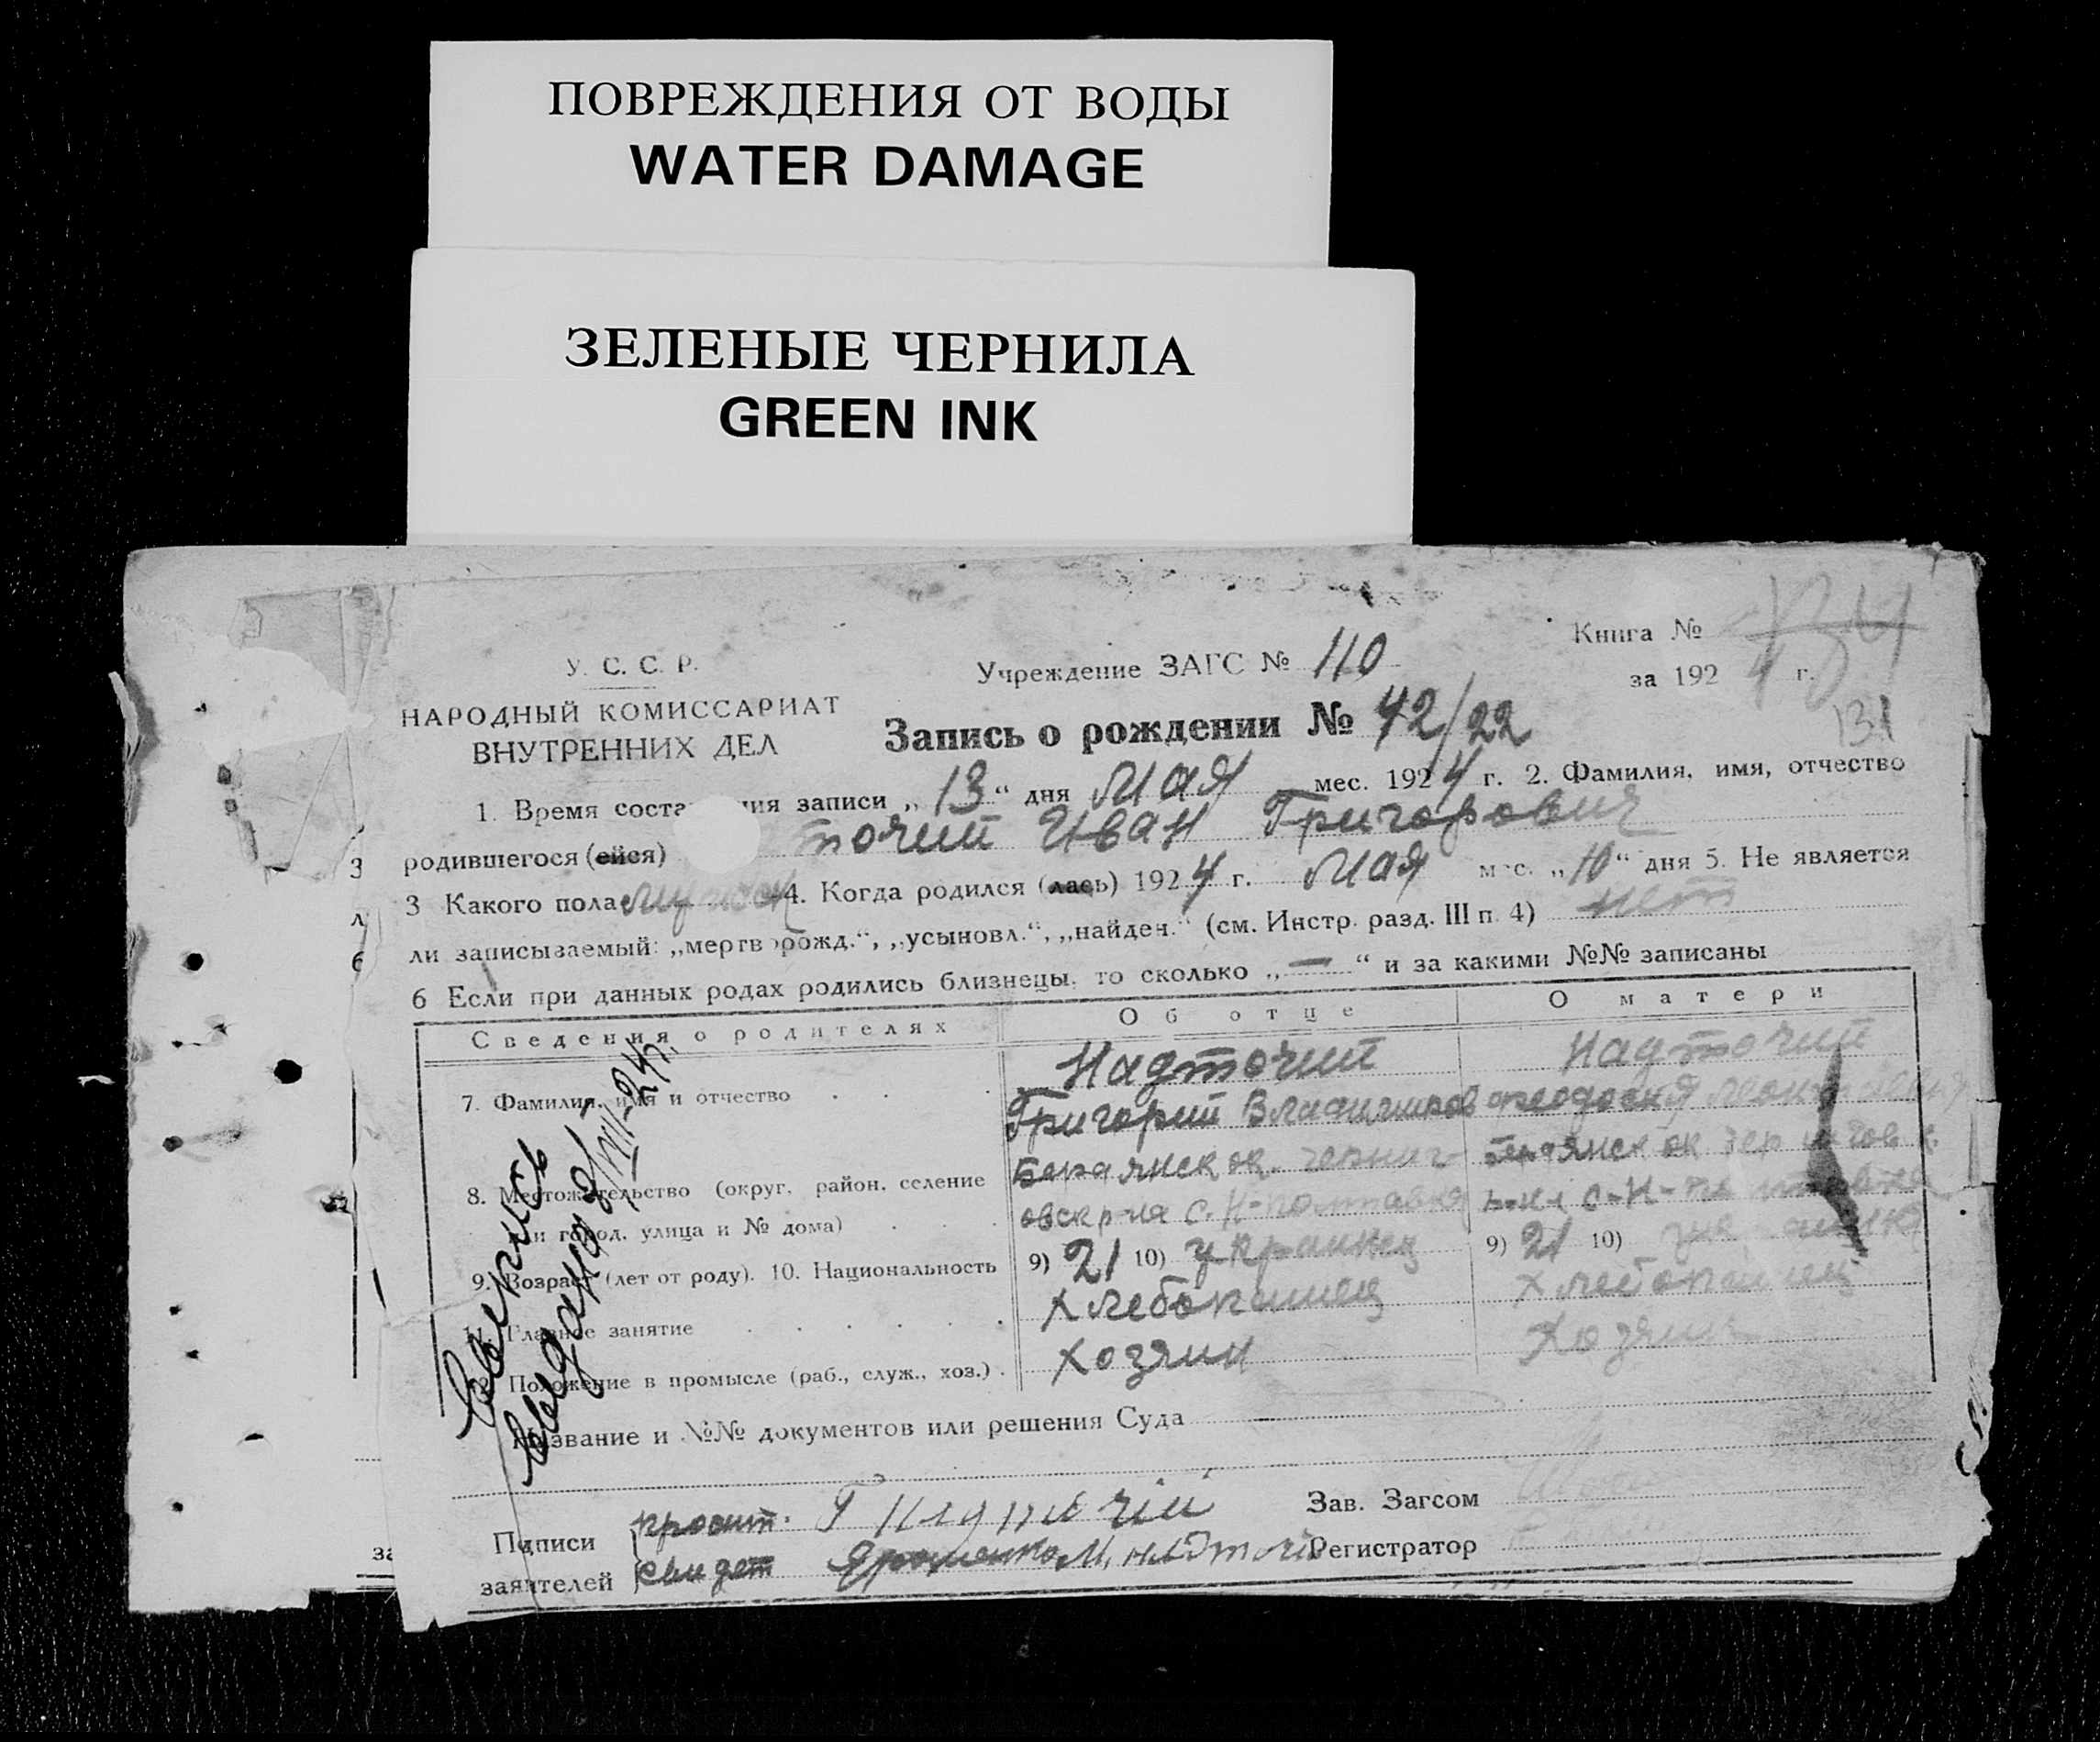 ПОВРЕЖДЕНИЯ ОТ ВОДЫ
WATER DAMAGE
ЗЕЛЕНЫЕ ЧЕРНИЛА
GREEN INK
Книга №
У. С. С. Р.
Учреждение ЗАГС № 110
за 192 4 г.
НАРОДНЫЙ КОМИССАРИАТ
ВНУТРЕННИХ ДЕЛ
Запись о рождении № 42/22
131
1. Время соста ния записи „13“ дня Мая мес. 1924 г. 2. Фамилия, имя, отчество
родившегося (ейся) точий Иван Григорович
3 Какого пола мужск 4. Когда родился (лась) 1924 г. Мая мес. „10“ дня 5. Не является
ли записываемый: „мертворожд.“, „усыновл.“, „найден.“ (см. Инстр. разд. III п. 4) нет
6 Если при данных родах родились близнецы, то сколько „—“ и за какими №№ записаны
Сведения о родителях Об отце О матери
7. Фамилия, имя и отчество Надточий Надточий
Григорий Владимиров Феодосия
8. Местожительство (округ, район, селение Бердянск ок. черниг- Бердянск ок черниговск.
или город, улица и № дома) овск р-на с. Н-Полтавка
9. Возраст (лет от роду). 10. Национальность 9) 21 10) украинец 9) 21 10)
11. Главное занятие Хлебопашец Хлебопашец
Положение в промысле (раб., служ., хоз.) Хозяин Хозяин
Название и №№ документов или решения Суда
Пдписи Г Надточій Зав. Загсом
заявителей свидет Яроменко М. Надточій Регистратор